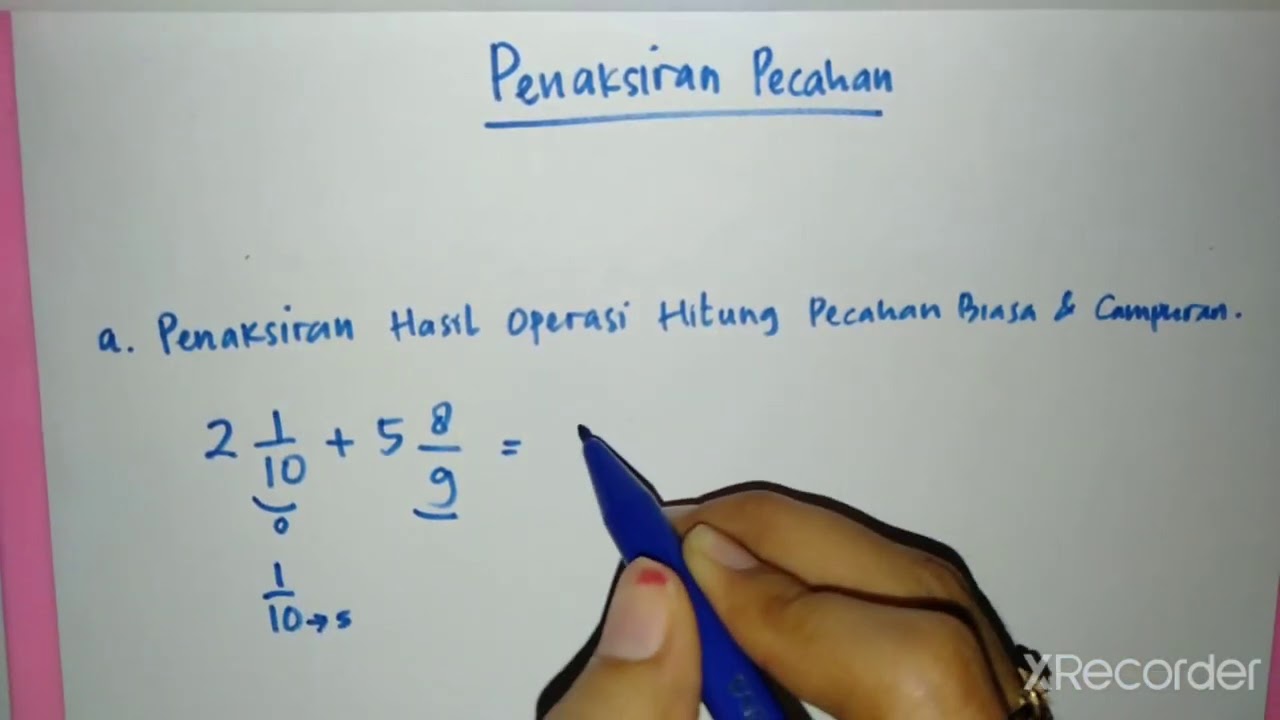 Penaksiran Pecahan
a. Penaksiran Hasil Operasi Hitung Pecahan Biasa & Campuran.
2 1/10 + 5 8/9 =
0
1/10 → 5
XRecorder